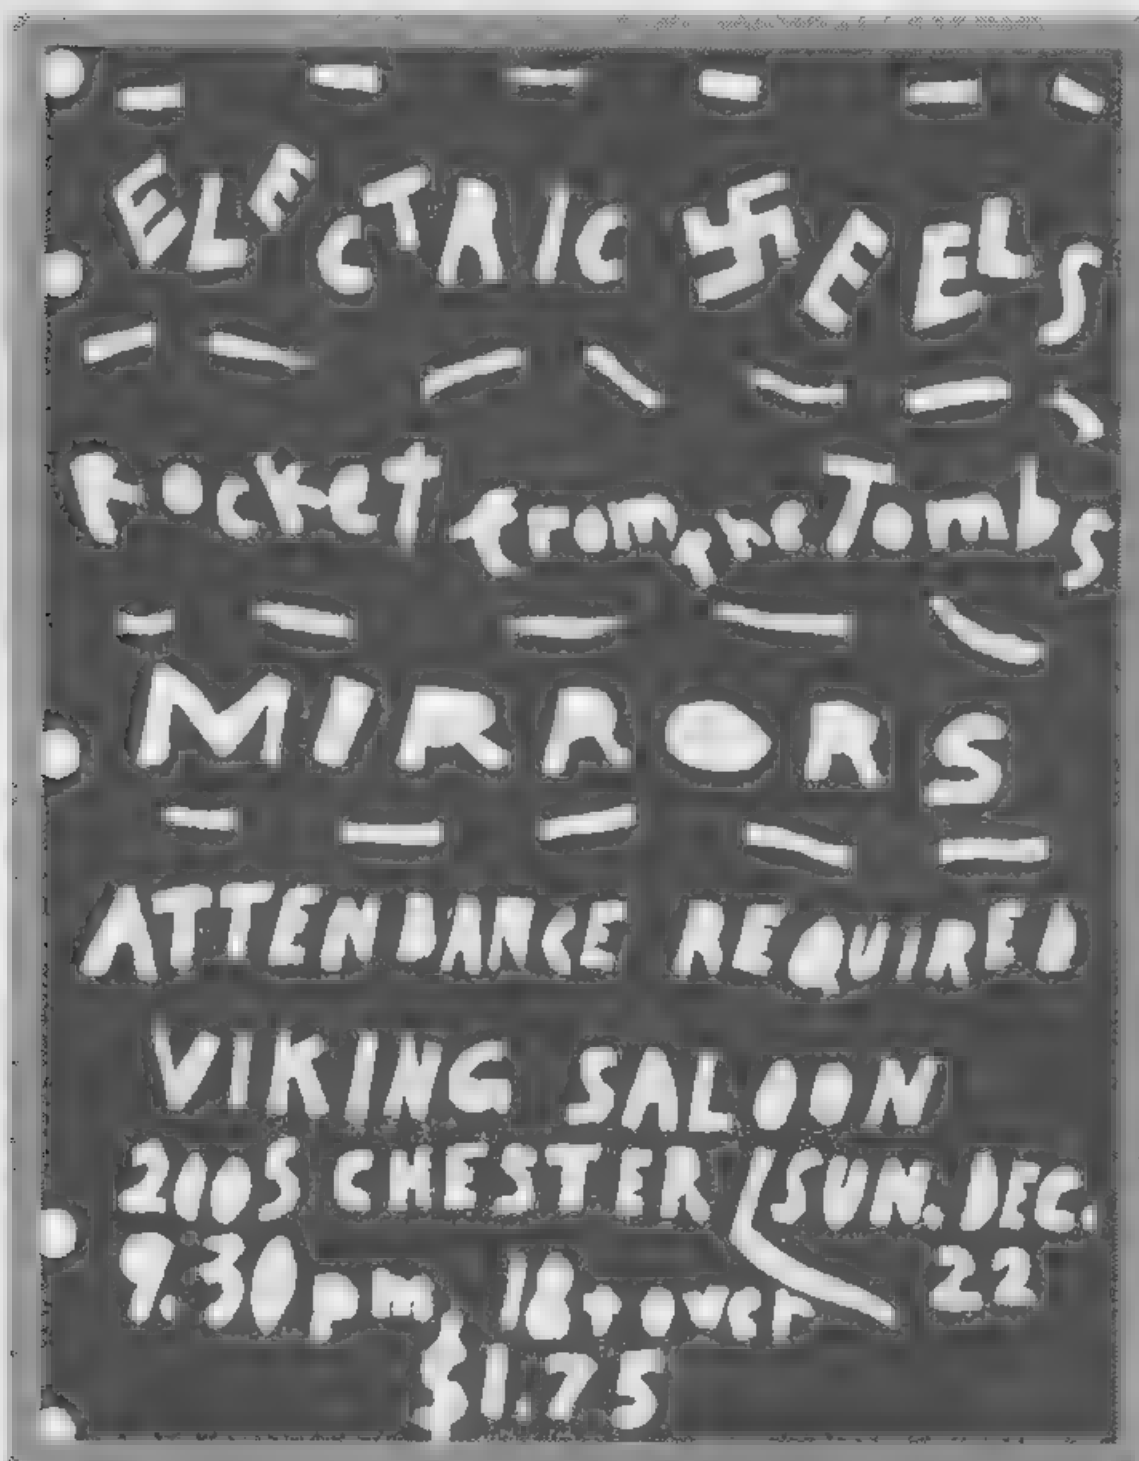 ELECTRIC 卐EELS
Rocket from the Tombs
MIRRORS
ATTENDANCE REQUIRED
VIKING SALOON
2005 CHESTER SUN. DEC.
9:30pm 18 + over 22
$1.75